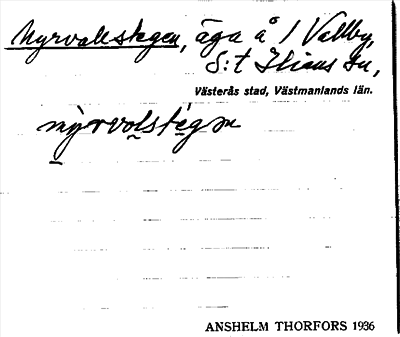 Nyrvallstegen, äga å 1 Vallby,
S:t Ilians sn,
Västerås stad, Västmanlands län.
nyrvolstegen
ANSHELM THORFORS 1936